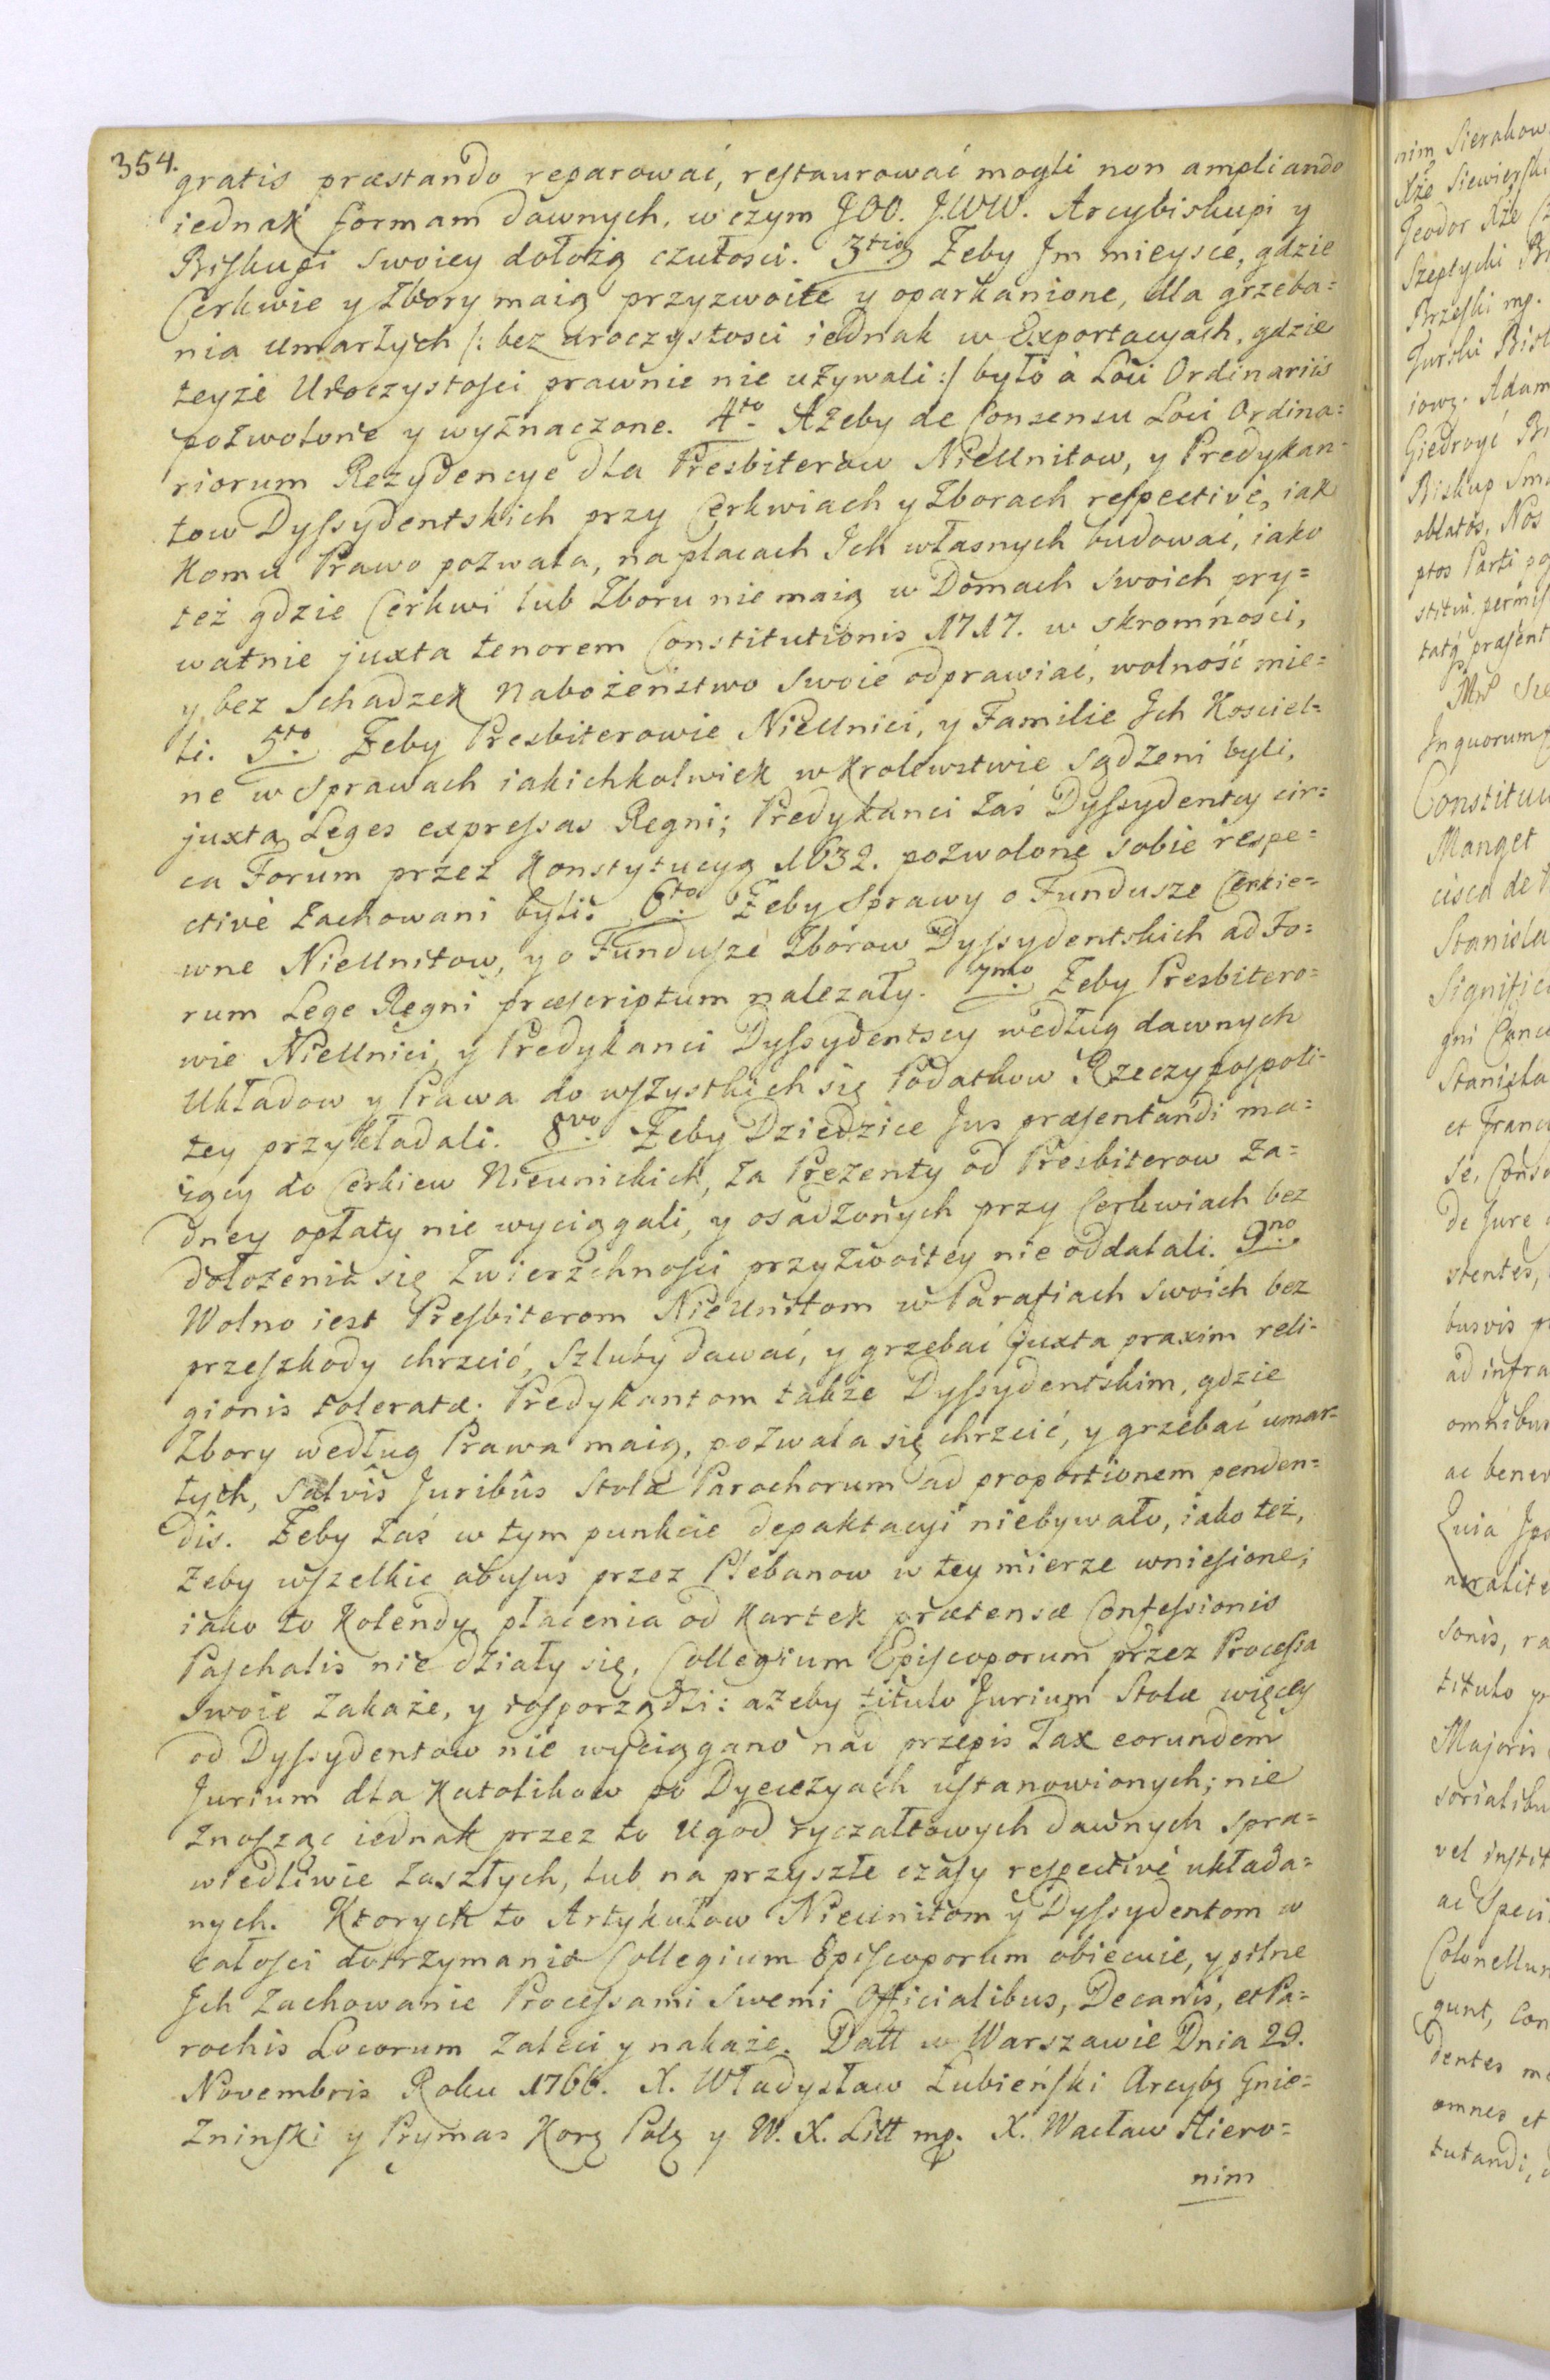 354.
gratis præstando reparować, restaurować mogli non ampliando
iednak formam dawnych, w czym JOO. J.WW. Arcybiskupi y
Biskupi swoiey dołożą czułosci. 3tio Żeby Jm mieysce, gdzie
Cerkwie y Zbory maią przyzwoite y oparkanione, dla grzeba=
nia umarłych /: bez uroczystosci iednak w Exportacyach, gdzie
teyże Uroczystosci prawnie nie używali :/ było à Loci Ordinariis
pozwolone y wyznaczone. 4to Ażeby de Consensu Loci Ordina=
riorum Rezydencye dla Presbiterow NieUnitow, y Predykan=
tow Dyssydentskich przy Cerkwiach y Zborach respectivè, iak
komu Prawo pozwala, na placach Ich własnych budować, iako
też gdzie Cerkwi lub Zboru nie maią w Domach swoich pry=
watnie juxta tenorem Constitutionis 1717. w skromności,
y bez Schadzek Nabożeństwo swoie odprawiać, wolność mie=
li. 5to Żeby Presbiterowie NieUnici, y Familie Ich Kosciel=
ne w sprawach iakichkolwiek w Krolewstwie sądzeni byli,
juxta Leges expressas Regni; Predykanci zaś Dyssydentcy cir=
ca Forum przez Konstytucyą 1632. pozwolone sobie respe=
ctivè zachowani byli. 6to Żeby Sprawy o Fundusze Cerkie=
wne NieUnitow, y o Fundusze Zborow Dyssydentskich ad Fo=
rum Lege Regni præscriptum nalezały. 7mo Żeby Presbitero=
wie NieUnici, y Predykanci Dyssydentscy według dawnych
Układow y Prawa do wszystkich się Podatkow Rzeczypospoli=
tey przykładali. 8vo Żeby Dziedzice Jus præsentandi ma=
iący do Cerkiew Nieunickich, za Prezenty od Presbiterow ża=
dney opłaty nie wyciągali, y osadzonych przy Cerkwiach bez
dołożenia się Zwierzchności przyzwoitey nie oddalali. 9no
Wolno iest Presbiterom NieUnitom w Parafiach swoich bez
przeszkody chrzcić, Szluby dawać, y grzebać juxta praxim reli=
gionis toleratæ. Predykantom także Dyssydentskim, gdzie
Zbory według Prawa maią, pozwala się chrzcić, y grzebać umar=
łych, salvis Juribus Stolæ Parochorum ad proportionem penden=
dis. Żeby zaś w tym punkcie depaktacyi niebywało, iako też,
żeby wszelkie abusus przez Plebanow w tey mierze wniesione;
iako to Kolendy, płacenia od Kartek prætensæ Confessionis
Paschalis nie działy się, Collegium Episcoporum przez Processa
swoie zakaże, y rosporządzi: ażeby titulo Jurium Stolæ więcey
od Dyssydentow nie wyciągano nad przepis Tax eorundem
Jurium dla Katolikow po Dyecezyach ustanowionych; nie
znosząc iednak przez to Ugod ryczałtowych dawnych spra=
wiedliwie zaszłych, lub na przyszłe czasy respectivè układa=
nych. Ktorych to Artykułow Nieunitom y Dyssydentom w
całosci dotrzymanie Collegium Episcoporum obiecuie, y pilne
Ich zachowanie Processami swemi Officialibus, Decanis, et Pa=
rochis Locorum zaleci y nakaże. Datt w Warszawie Dnia 29.
Novembris Roku 1766. X. Władysław Łubieński Arcybą Gnie=
zninski y Prymas Korą Polą y W. X. Litt mp. X. Wacław Hiero=
nim
nim Sierakow
Xże Siewierski
Teodor Xże Cz
Szeptycki Bi
Brzeski mp.
Turski Bisk
iową. Adam
Giedroyć Bi
Biskup Smo
oblatos, Nos
ptos Parti po
stitui permis
tatý præsent
In quorum
Constitu
Manget
cisca de
Stanisla
Significa
gni Canc
Stanisla
et Franc
se, Conso
de Jure
stentes,
busvis p
ad infra
omnibus
ac benev
Quia Ipo
neralite
sonis, ra
titulo p
Majoris
sorialibu
vel instit
ac Speci
Colonellun
gunt, con
dentes m
omnes et
tutandi,